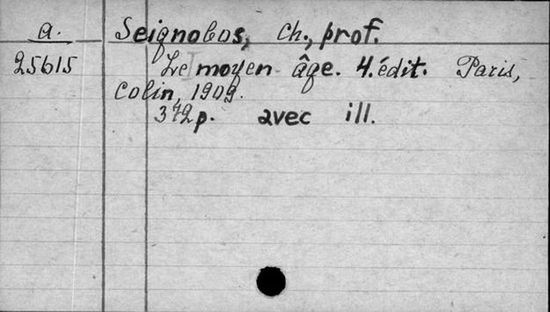 a. Seignobos, Ch., prof.
25615 Le moyen âge. 4. édit. Paris,
Colin, 1909.
372 p. avec ill.